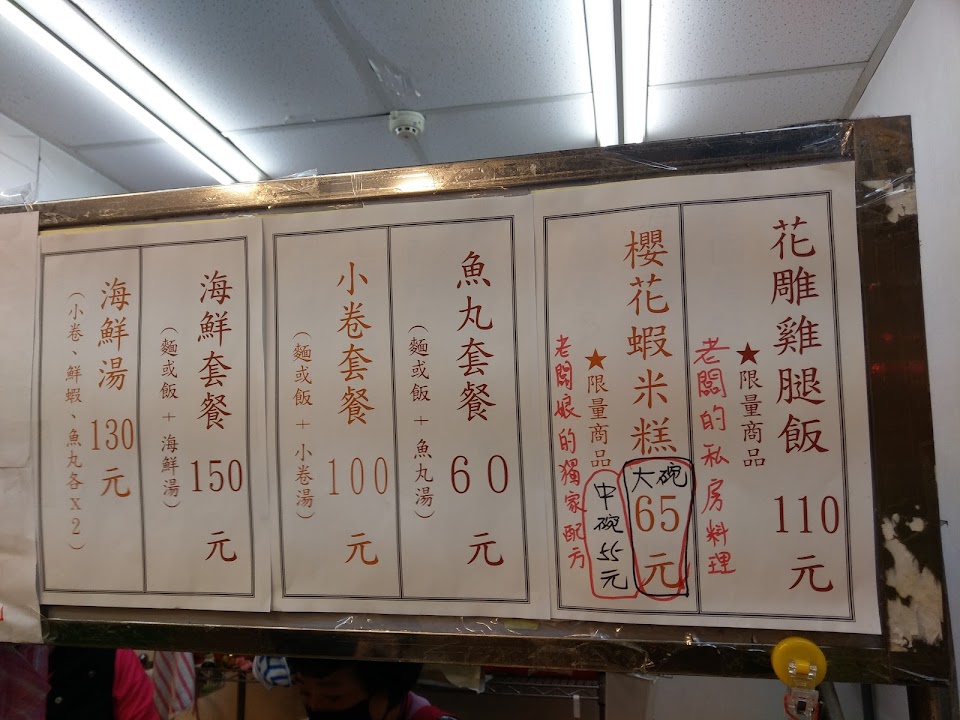 花雕雞腿飯 110元
★限量商品
老闆的私房料理
櫻花蝦米糕 65元
大碗
★限量商品
中碗55元
老闆娘的獨家配方
魚丸套餐 60元
(麵或飯+魚丸湯)
小卷套餐 100元
(麵或飯+小卷湯)
海鮮套餐 150元
(麵或飯+海鮮湯)
海鮮湯 130元
(小卷、鮮蝦、魚丸各x2)